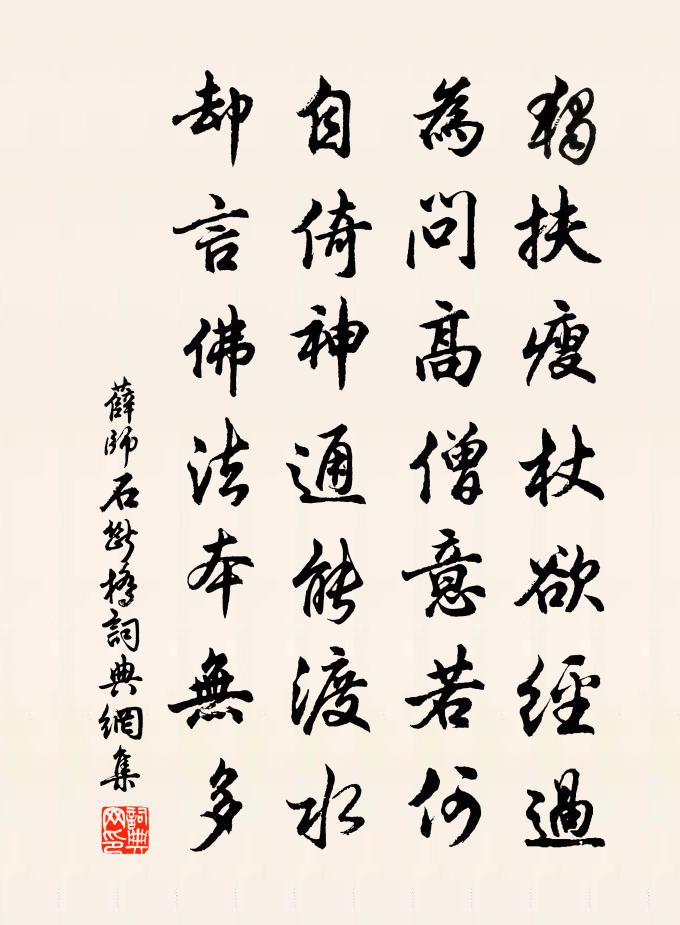 獨扶瘦杖欲經過
為問高僧意若何
自倚神通能渡水
却言佛法本無多
薛師石斷橋詞典網集
詞典網印